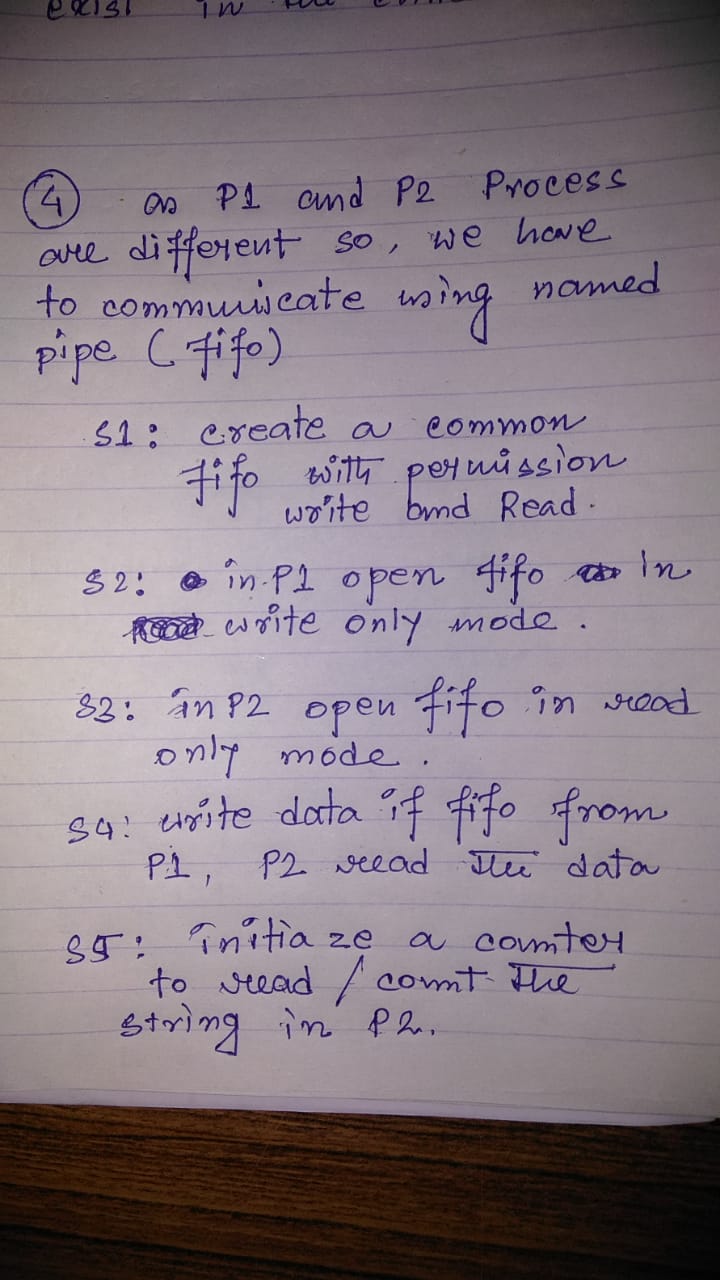 exist in the
④ as P1 and P2 Process
are different so, we have
to communicate using named
pipe (fifo)
S1: create a common
fifo with permission
write and Read.
S2: in P1 open fifo in
write only mode.
S3: in P2 open fifo in read
only mode.
S4: write data if fifo from
P1, P2 read the data
S5: initiaze a counter
to read / count the
string in P2.